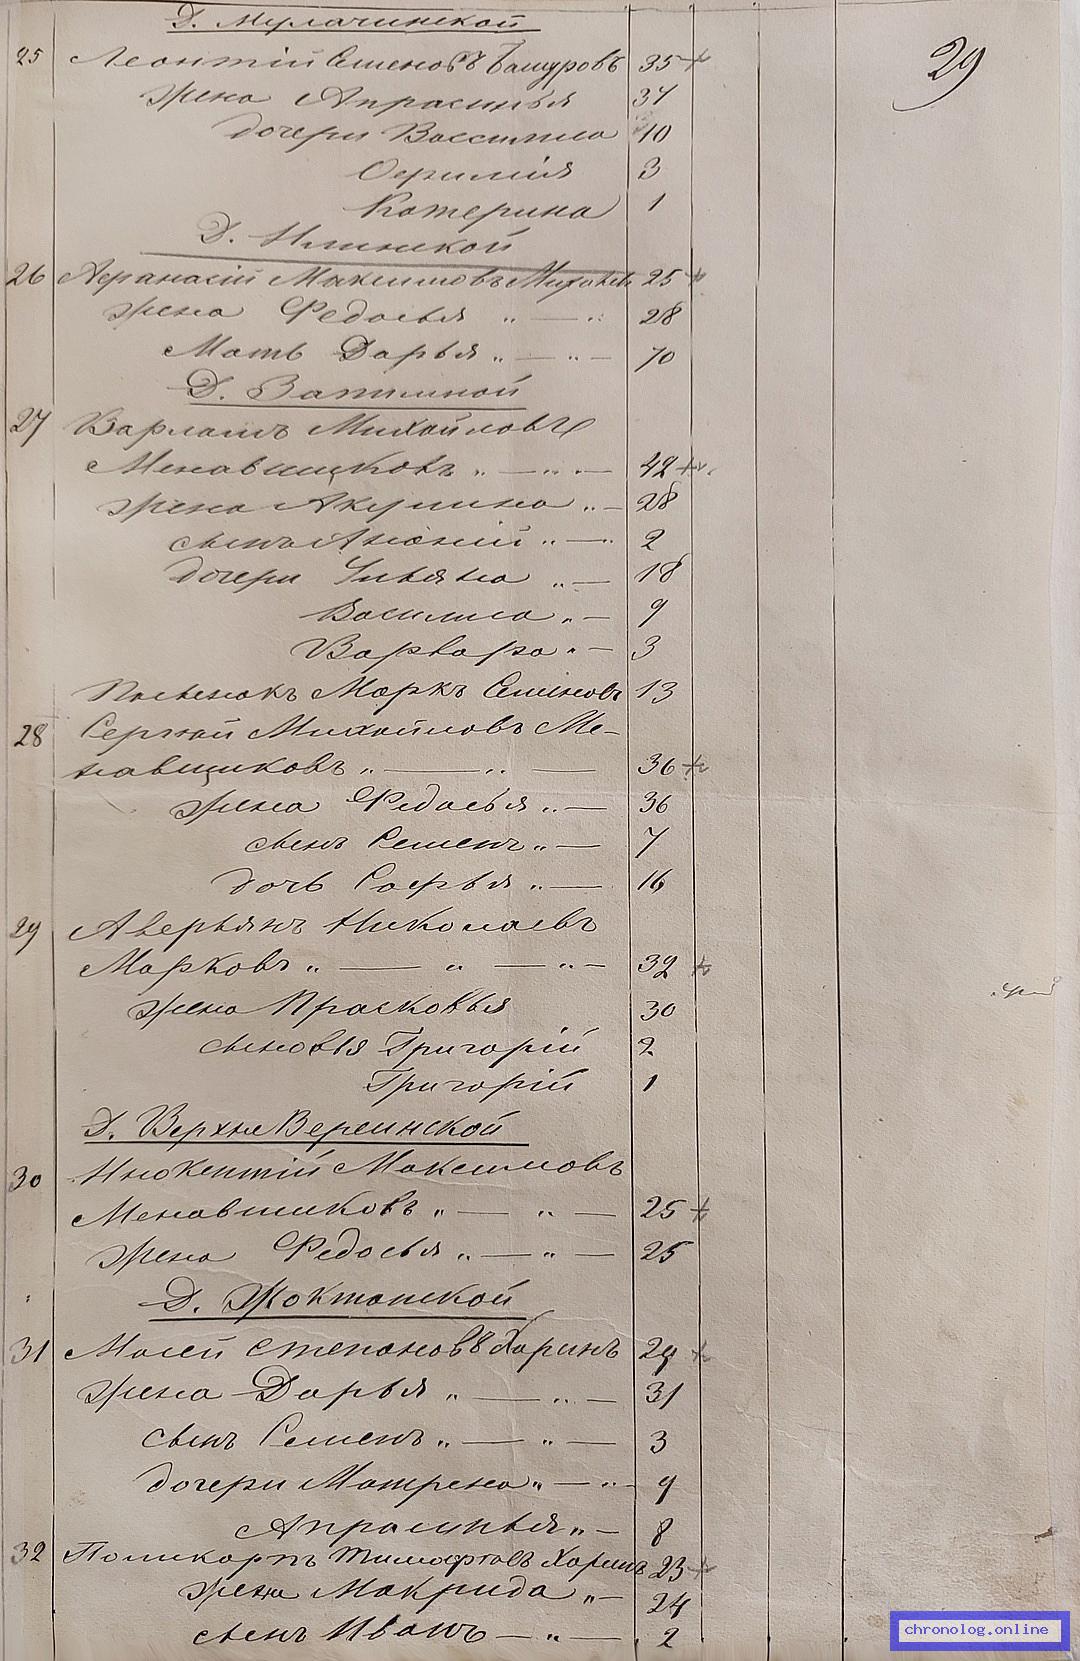 Д. Мулачинской
29
25 Леонтій Семеновъ Башуровъ 35
жена Апросинья 37
дочери Вассилиса 10
Офимія 3
Катерина 1
Д. Илимской
26 Афанасій Максимовъ 25
жена Федосья " — " 28
Мать Дарья " — " — 70
Д.
27 Варламъ Михайловъ
Менавщиковъ " — " — 42
жена Акулина " — 28
сынъ " — " 2
дочери Ульяна " — 18
Василиса " — 9
Варвара " — 3
Маркъ Семеновъ 13
28 Сергий Михайловъ Ме-
навщиковъ " — " — 36
жена Федосья " — 36
сынъ Семенъ " — 7
дочь Софья " — 16
29 Аверьянъ Николаевъ
Марковъ " — " — " — 32
жена Прасковья 30
сыновья Григорій 2
Григорій 1
Д. Верхне Вереинской
30 Инокентій Максимовъ
Менавшиковъ " — " — 25
жена Федосья " — " — 25
Д. Жоктапской
31 Мосей Степановъ Харинъ 29
жена Дарья " — " — 31
сынъ Семенъ " — " — 3
дочери Матрена " — " — 9
Апросинья " — 8
32 Поликарпъ Тимофеевъ Харинъ 23
жена Макрида " — 24
сынъ Иванъ — " — 2
chronolog.online